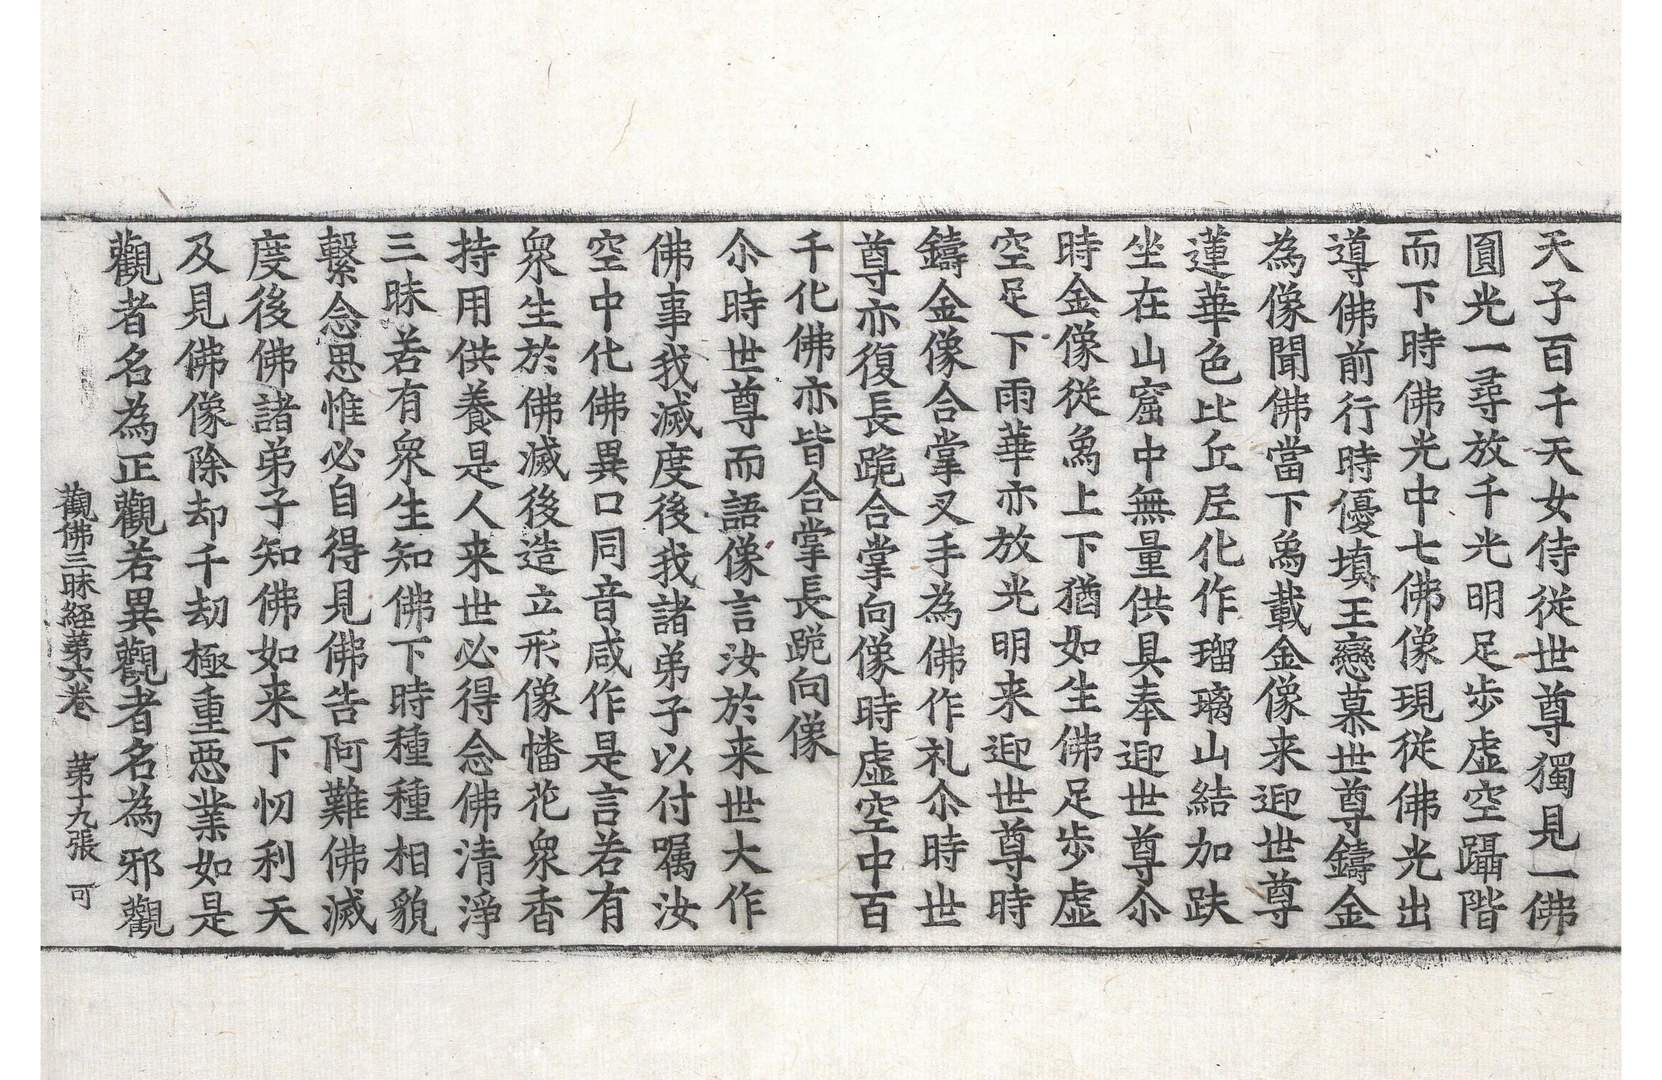 天子百千天女侍従世尊獨見一佛
圓光一尋放千光明足歩虛空躡階
而下時佛光中七佛像現従佛光出
導佛前行時優填王戀慕世尊鑄金
為像聞佛當下為載金像来迎世尊
蓮華色比丘尼化作瑠璃山結加趺
坐在山窟中無量供具奉迎世尊尒
時金像従象上下猶如生佛足歩虛
空足下雨華亦放光明来迎世尊時
鑄金像合掌叉手為佛作礼尒時世
尊亦復長跪合掌向像時虛空中百
千化佛亦皆合掌長跪向像
尒時世尊而語像言汝於来世大作
佛事我滅度後我諸弟子以付嘱汝
空中化佛異口同音咸作是言若有
衆生於佛滅後造立形像幡花衆香
持用供養是人来世必得念佛清淨
三昧若有衆生知佛下時種種相貌
繫念思惟必自得見佛告阿難佛滅
度後佛諸弟子知佛如来下忉利天
及見佛像除却千劫極重惡業如是
觀者名為正觀若異觀者名為邪觀
觀佛三昧経苐六巻 苐十九張 可